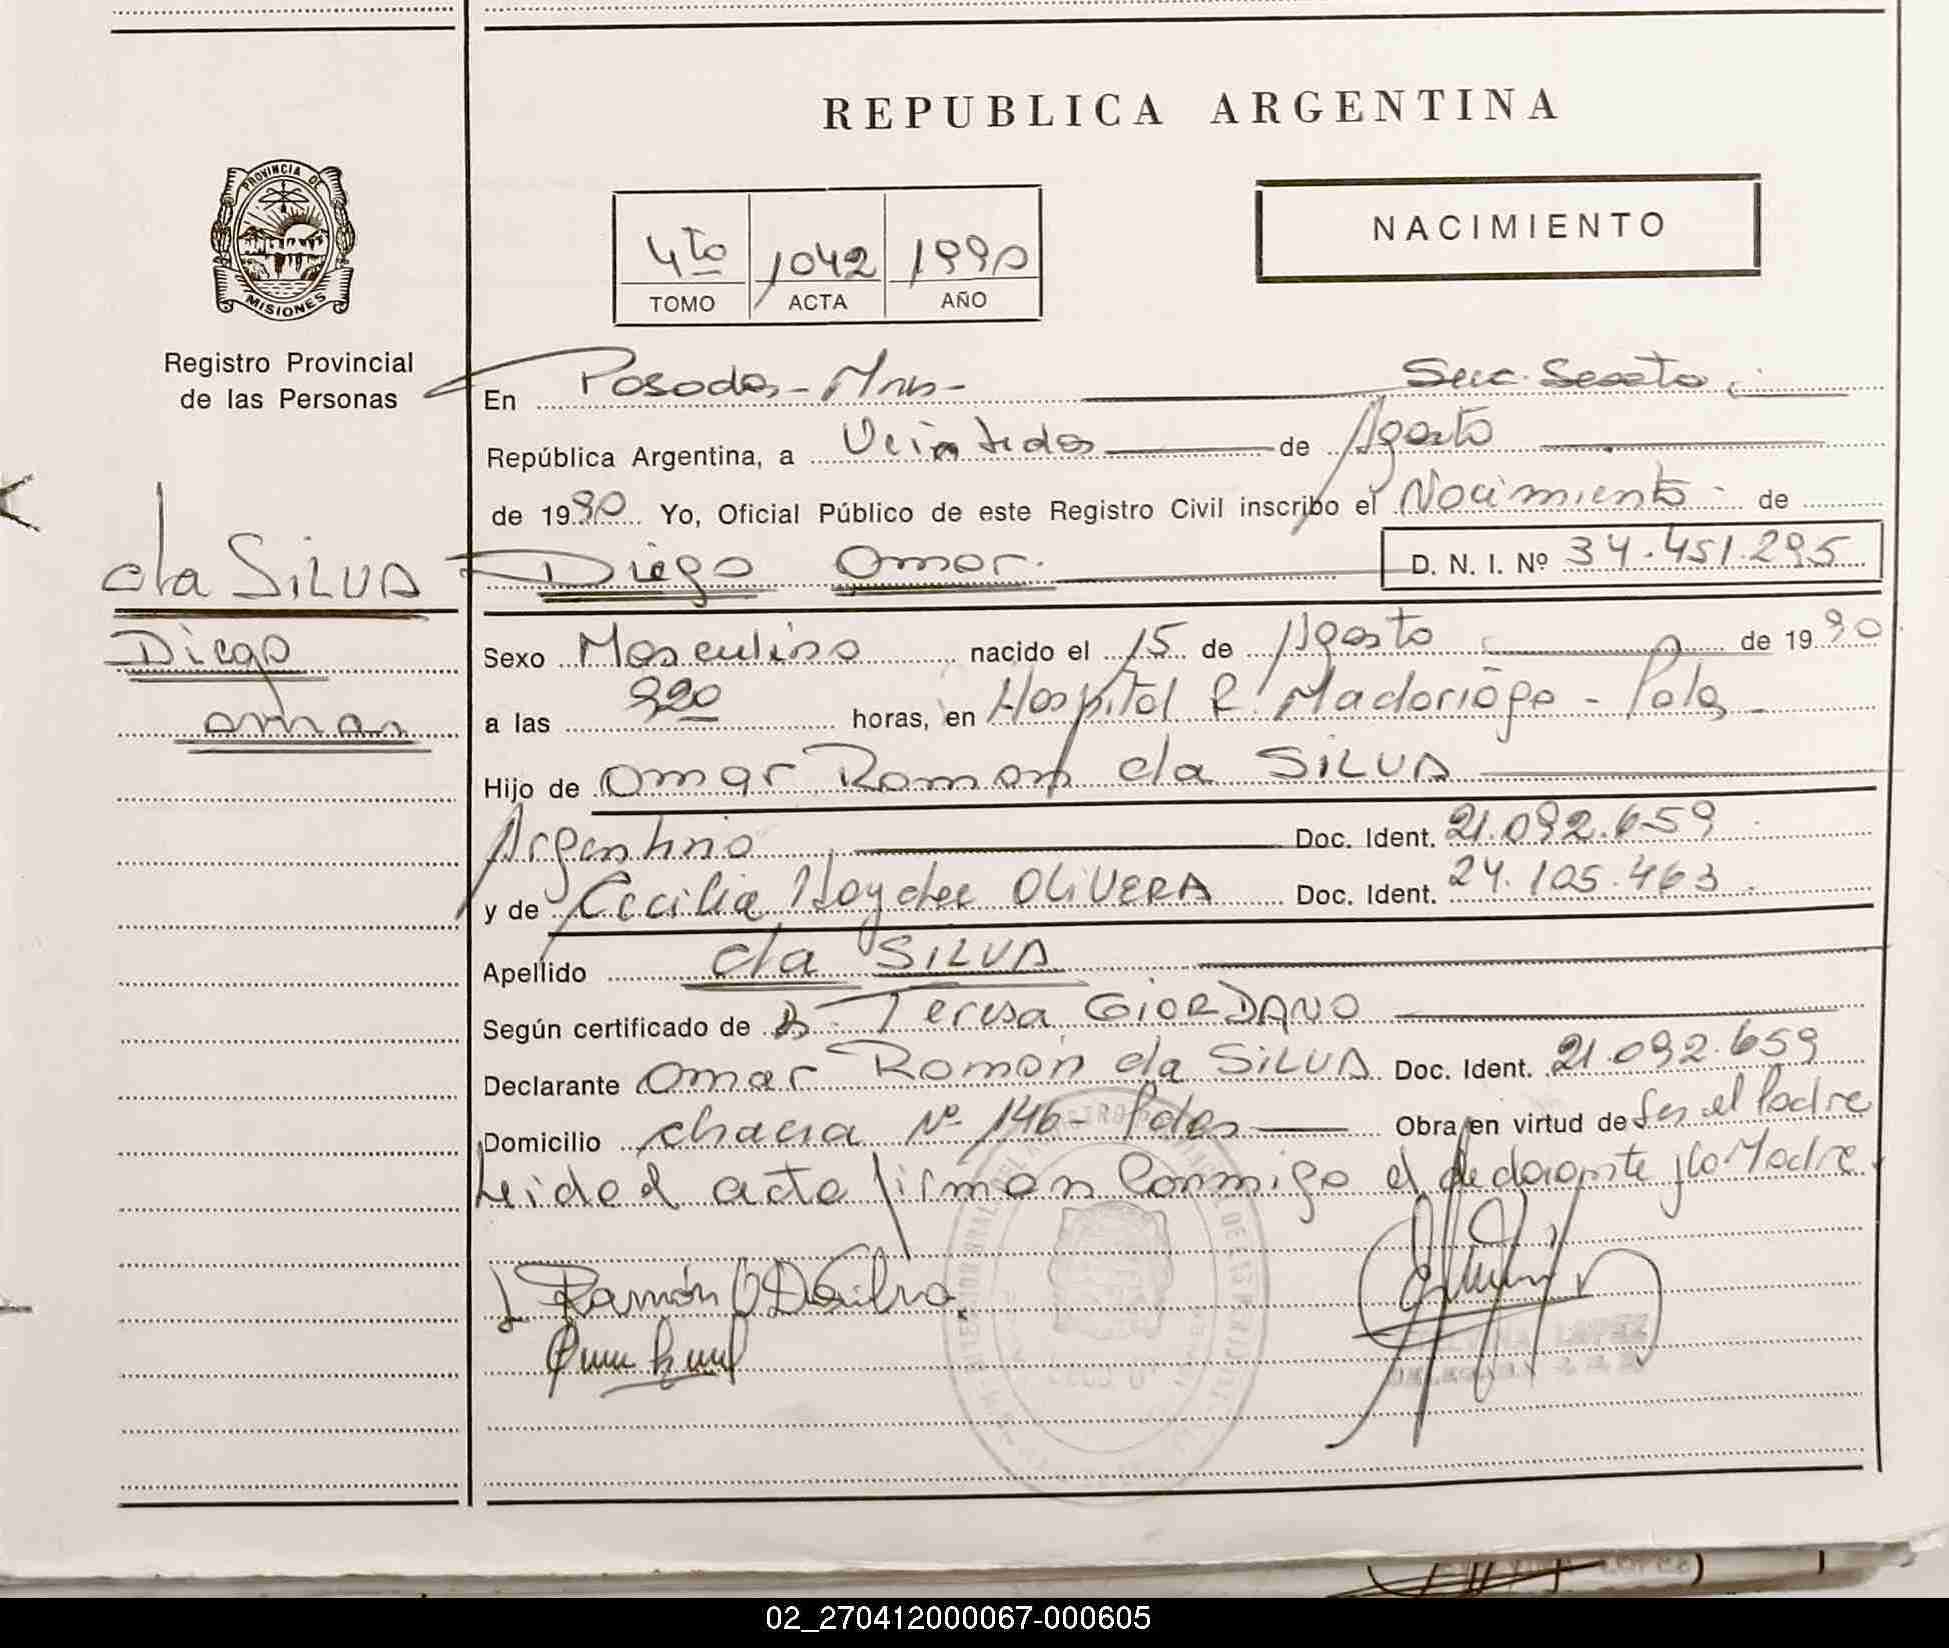 REPUBLICA ARGENTINA
PROVINCIA DE
MISIONES
Registro Provincial
de las Personas
NACIMIENTO
4to 1042 1990
TOMO ACTA AÑO
En Posadas - Mns - Secc. Sexta
República Argentina, a Veintidos de Agosto
de 1990 Yo, Oficial Público de este Registro Civil inscribo el Nacimiento de
Diego Omar. D. N. I. Nº 34.451.295
da SILVA
Diego
Omar
Sexo Masculino nacido el 15 de Agosto de 1990
a las 920 horas, en Hospital R. Madariaga - Pdas -
Hijo de Omar Ramon da SILVA
Argentino Doc. Ident. 21.092.659
y de Cecilia Haydee OLIVERA Doc. Ident. 24.105.463
Apellido da SILVA
Según certificado de Teresa GIORDANO
Declarante Omar Ramón da SILVA Doc. Ident. 21.092.659
Domicilio chacra Nº 146 - Pdas Obra en virtud de Ser el Padre
Leida el acta firman conmigo el declarante y la Madre.
Ramón O Da Silva
02_270412000067-000605